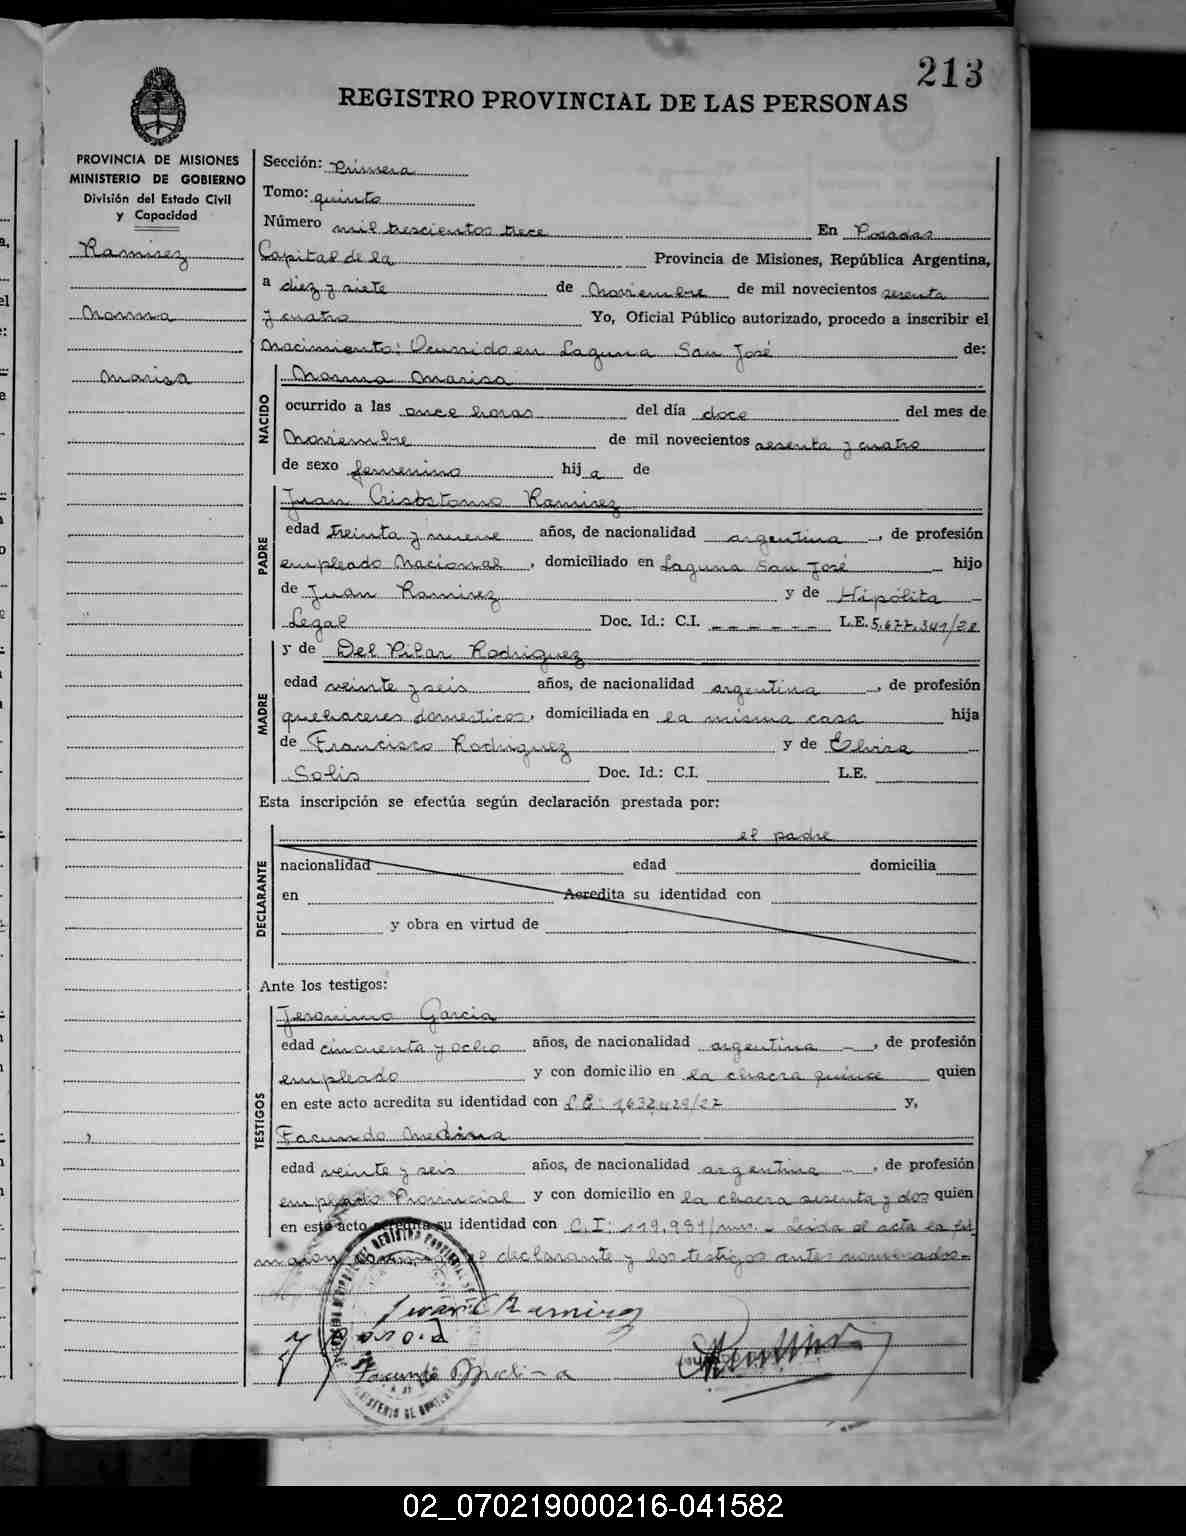 213
REGISTRO PROVINCIAL DE LAS PERSONAS
PROVINCIA DE MISIONES
MINISTERIO DE GOBIERNO
División del Estado Civil
y Capacidad
Ramirez
Norma
Marisa
Sección: Primera
Tomo: quinto
Número mil trescientos trece En Posadas
Capital de la Provincia de Misiones, República Argentina,
a diez y siete de Noviembre de mil novecientos sesenta
y cuatro Yo, Oficial Público autorizado, procedo a inscribir el
Nacimiento: Ocurrido en Laguna San José de:
NACIDO
Norma Marisa
ocurrido a las once horas del día doce del mes de
Noviembre de mil novecientos sesenta y cuatro
de sexo femenino hija de
PADRE
Juan Crisóstomo Ramirez
edad treinta y nueve años, de nacionalidad argentina, de profesión
empleado Nacional, domiciliado en Laguna San José hijo
de Juan Ramirez y de Hipólita
Legal Doc. Id.: C.I. - - - - - - L.E. 5.677.341/28
MADRE
y de Del Pilar Rodriguez
edad veinte y seis años, de nacionalidad argentina, de profesión
quehaceres domesticos, domiciliada en la misma casa hija
de Francisco Rodriguez y de Elvira
Solis Doc. Id.: C.I. L.E.
Esta inscripción se efectúa según declaración prestada por:
DECLARANTE
el padre
nacionalidad edad domicilia
en Acredita su identidad con
y obra en virtud de
Ante los testigos:
TESTIGOS
Jeronimo Garcia
edad cincuenta y ocho años, de nacionalidad argentina -, de profesión
empleado y con domicilio en la chacra quince quien
en este acto acredita su identidad con L.E: 1,632,429/27 y,
Facundo Medina
edad veinte y seis años, de nacionalidad argentina -, de profesión
empleado Provincial y con domicilio en la chacra sesenta y dos quien
en este acto acredita su identidad con C.I: 119,981/ Leida el acta la fir
declarante y los testigos antes nombrados-
Juan C Ramirez
J Garcia
Facundo Medina
02_070219000216-041582